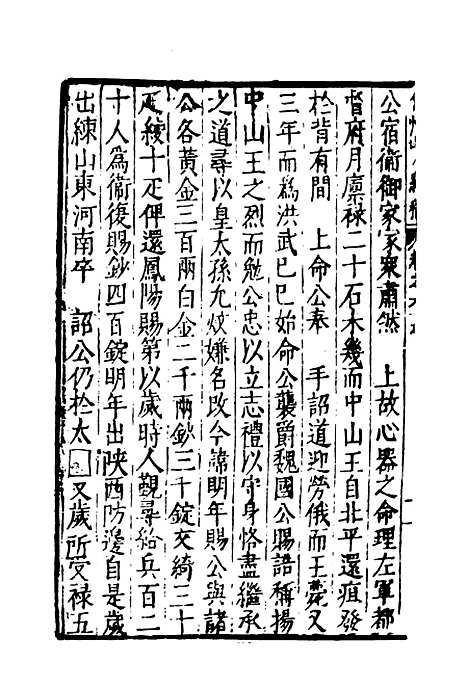 公宿衛御家冢衆肅然　上故心器之命理左軍都
督府月廪禄二十石未幾而中山王自北平還疽發
於背有間　上命公奉　手詔道迎勞俄而王薨又
三年而爲洪武己巳始命公襲爵魏國公賜誥稱揚
中山王之烈而勉公忠以立志禮以守身恪盡繼承
之道尋以皇太孫允炆嫌名改今諱明年賜公與諸
公各黄金三百兩白金二千兩鈔三千錠文綺三十
疋綾十疋俾還鳳陽賜第以歲時入覲尋給兵百二
十人爲衞復賜鈔四百錠明年出陝西防邊自是歲
出練山東河南卒　詔公仍於太又歲所受禄五